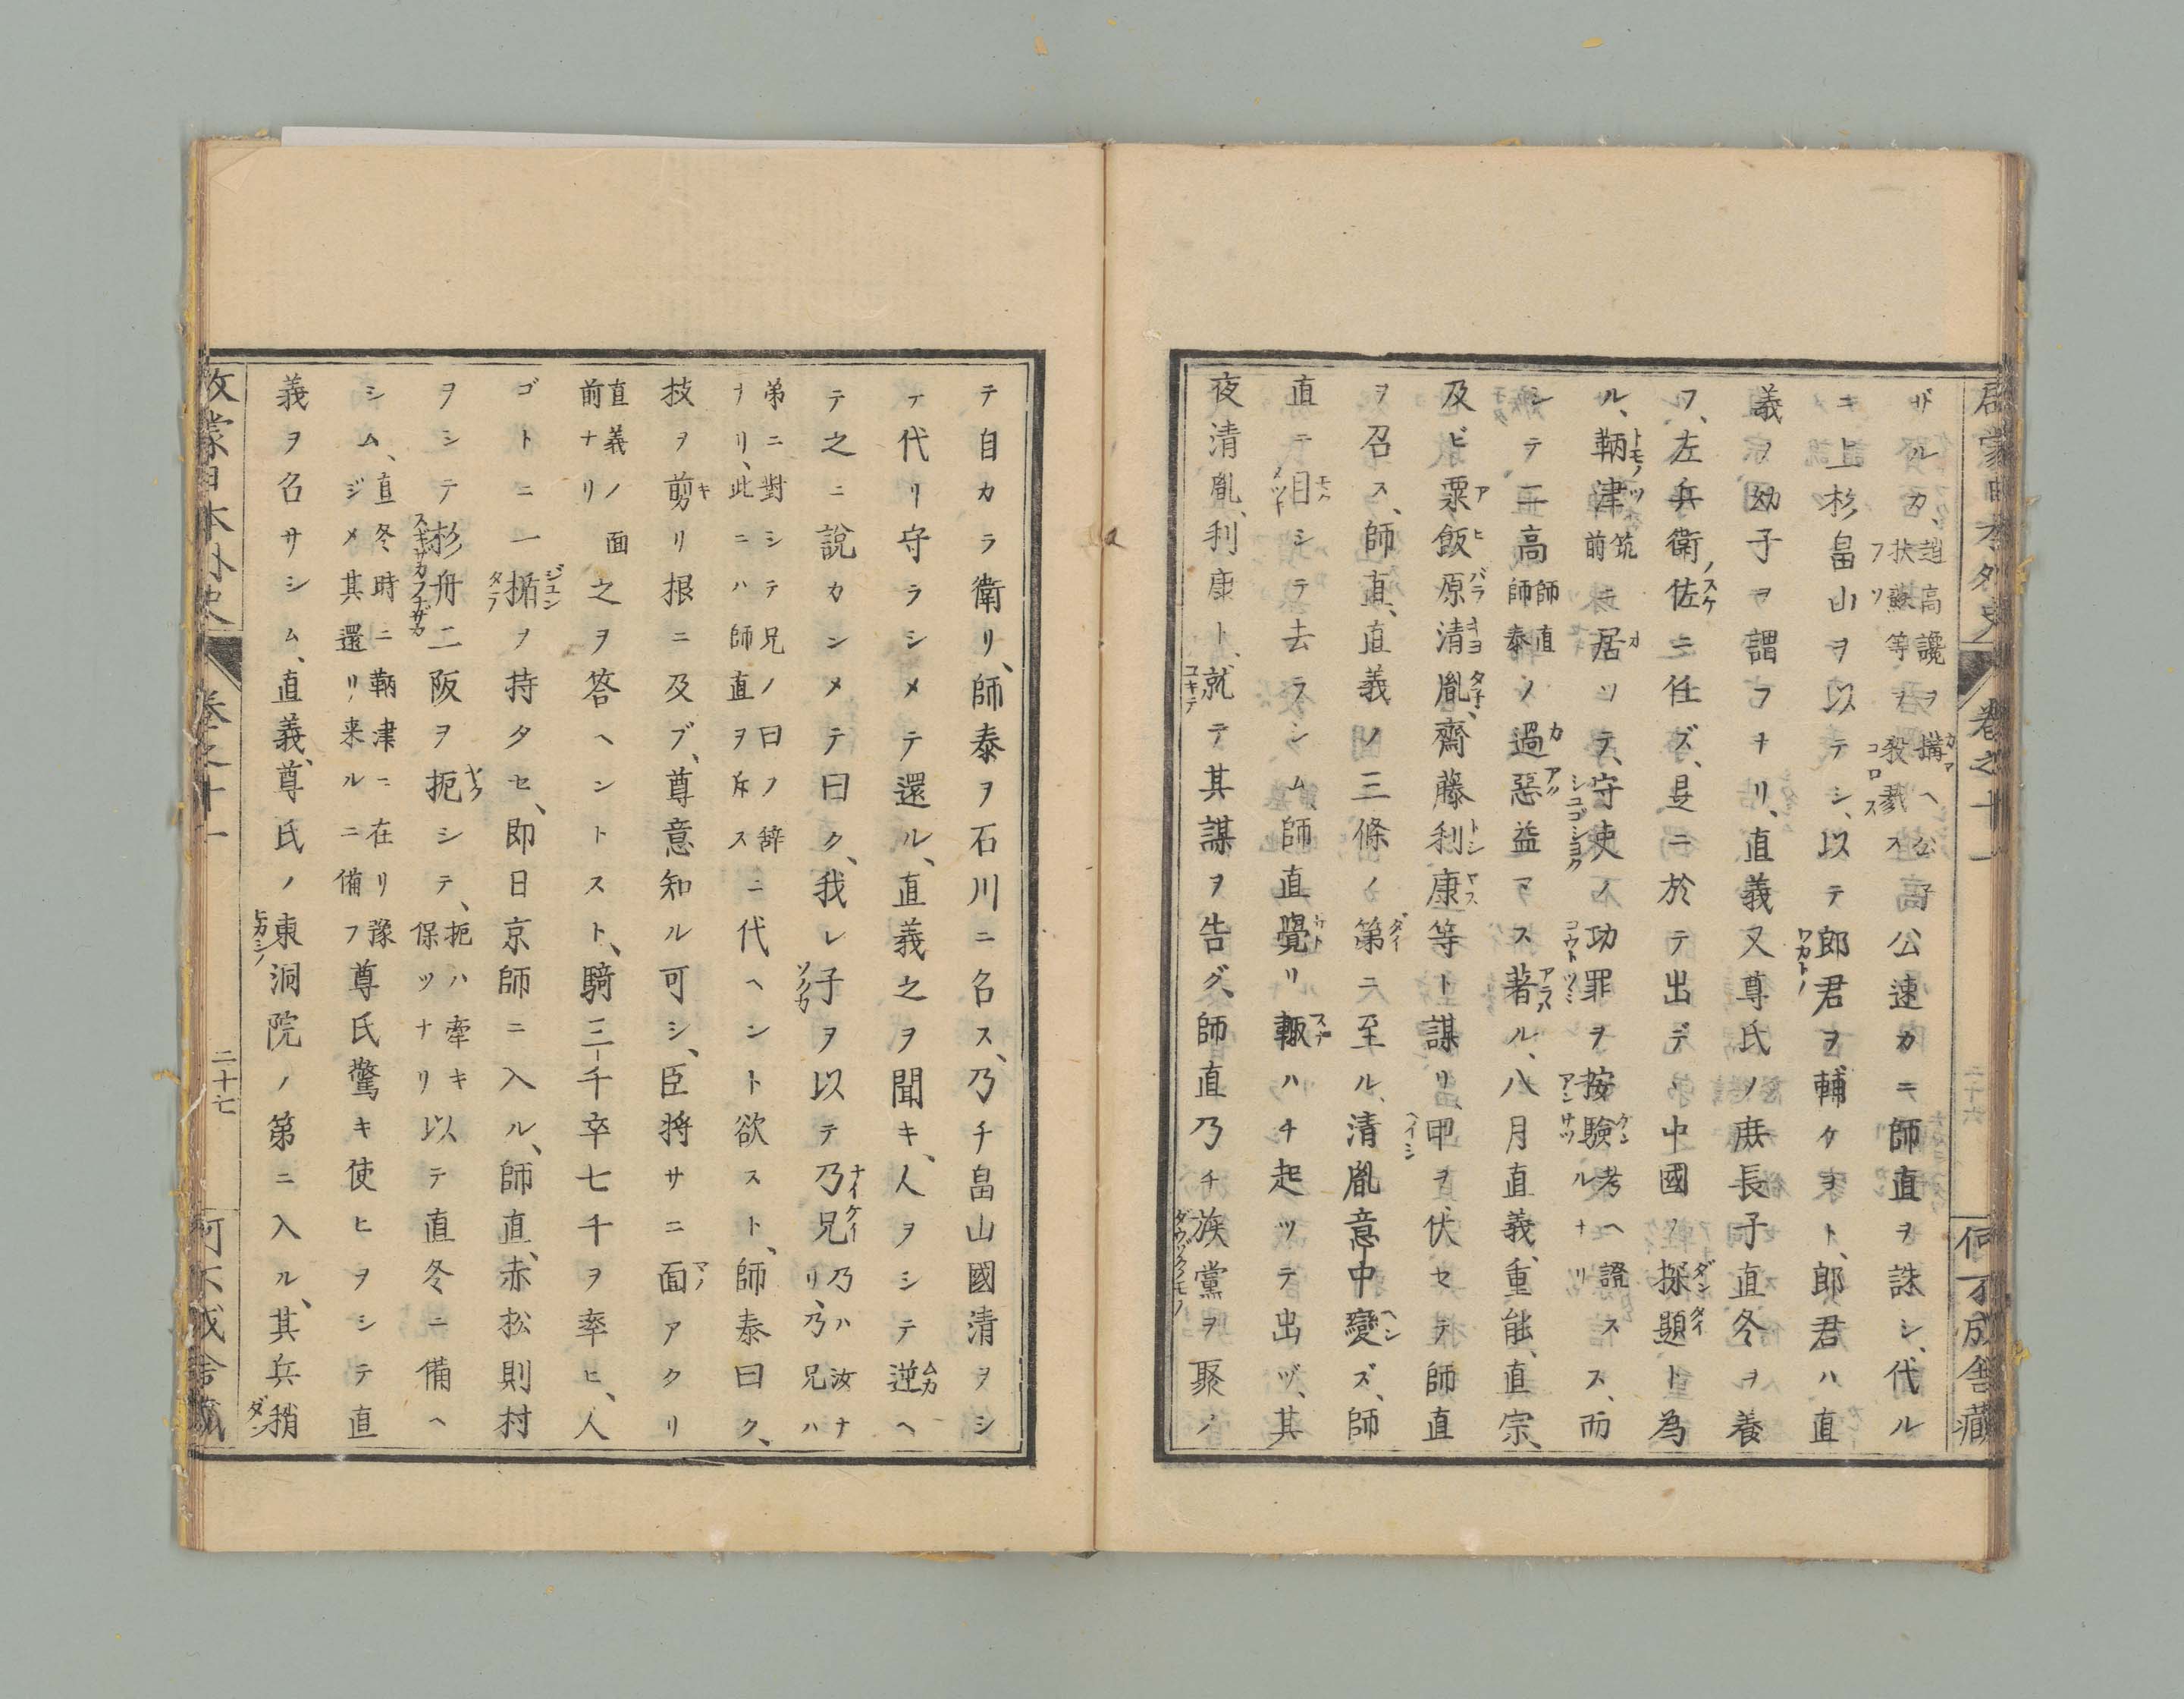 啓蒙日本外史 卷之十一 二十六 何不成舎藏
ザルカ、趙高讒ヲ搆ヘ公子扶蘇等ヲ殺戮ス高公速カニ師直ヲ誅シ、代ル
ニ上杉畠山ヲ以テシ、以テ郎君ヲ輔ケヨト、郎君ハ直
義ヲ幼子ヲ謂フナリ、直義又尊氏ノ庶長子直冬ヲ養
フ、左兵衛佐ニ任ズ、是ニ於テ出デ、中國ノ探題ト為
ル、鞆津筑前ニ居ツテ、守使ノ功罪ヲ按驗考ヘ證スルナリス、而
シテ二高師直師泰ノ過惡益マス著ル、八月直義、重能、直宗、
及ビ粟飯原清胤、齋藤利康等ト謀リ、甲ヲ伏セテ師直
ヲ召ス、師直、直義ノ三條ノ第ニ至ル、清胤意中變ズ、師
直テ目シテ去ラシム、師直覺リ輙ハチ起ツテ出ヅ、其
夜清胤、利康ト、就テ其謀ヲ告グ、師直乃チ族黨ヲ聚メ
テ自カラ衛リ、師泰ヲ石川ニ召ス、乃チ畠山國清ヲシ
テ代リ守ラシメテ還ル、直義之ヲ聞キ、人ヲシテ逆ヘ
テ之ニ説カシメテ曰ク、我レ子ヲ以テ乃兄乃ハ汝ナリ、乃兄ハ
弟ニ對シテ兄ノ曰ノ辞ナリ、此ニハ師直ヲ斥スニ代ヘント欲スト、師泰曰ク、
技ヲ剪リ根ニ及ブ、尊意知ル可シ、臣将サニ面アタリ
直義ノ面前ナリ之ヲ答ヘントスト、騎三千卒七千ヲ率ヒ、人
ゴトニ一楯ヲ持タセ、即日京師ニ入ル、師直、赤松則村
ヲシテ杉舟二阪ヲ扼シテ、扼ハ牽キ保ツナリ以テ直冬ニ備ヘ
シム、直冬時ニ鞆津ニ在リ豫ジメ其還リ来ルニ備フ尊氏驚キ使ヒヲシテ直
義ヲ召サシム、直義、尊氏ノ東洞院ノ第ニ入ル、其兵稍
啓蒙日本外史 卷之十一 二十七 何不成舎藏